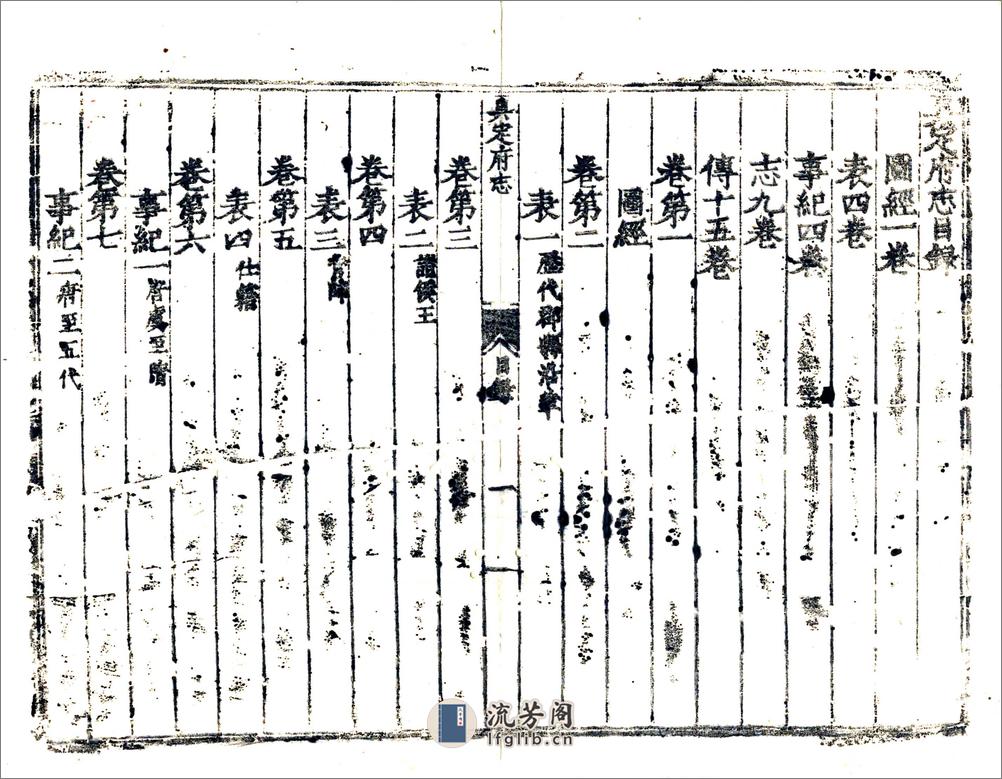 真定府志目録
圖經一卷
表四卷
事紀四卷
志九卷
傳十五卷
卷第一
圖經
卷第二
表一 歷代郡縣沿革
真定府志
目録
一
卷第三
表二 諸侯王
卷第四
表三
卷第五
表四 仕籍
卷第六
事紀一 唐虞至隋
卷第七
事紀二 唐至五代
流芳阁
lfglib.cn